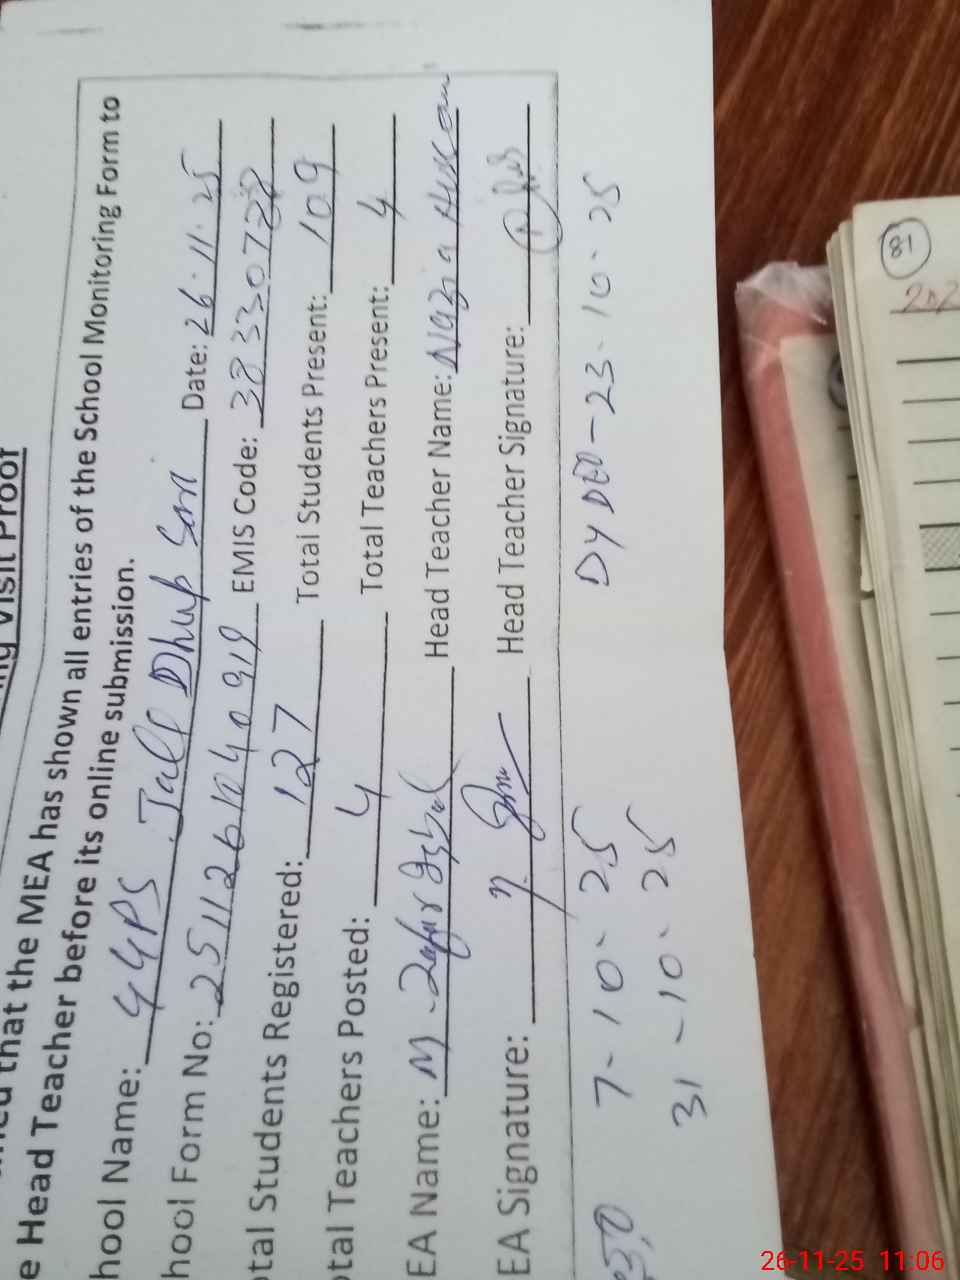 Visit Proof
that the MEA has shown all entries of the School Monitoring Form to
e Head Teacher before its online submission.
hool Name: GGPS Jall Dhup Sari Date: 26.11.25
hool Form No: 2511261040919 EMIS Code: 38330728
otal Students Registered: 127 Total Students Present: 109
otal Teachers Posted: 4 Total Teachers Present: 4
EA Name: M. Zafar Iqbal Head Teacher Name: Nazia Hassan
EA Signature: Head Teacher Signature:
7-10-25 DYDEO-23-10-25
31-10-25
81
26-11-25 11:06